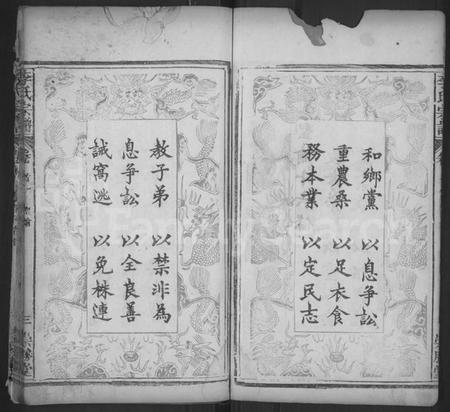 和鄉黨 以息爭訟
重農桑 以足衣食
務本業 以定民志
教子弟 以禁非為
息爭訟 以全良善
誡窩逃 以免株連